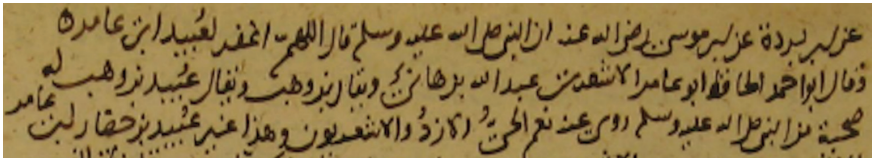 عن ابى بردة عن ابى موسى رضى الله عنه ان النبى صلى الله عليه وسلم قال اللهم اغفر لعبيد ابى عامر
وقال ابو احمد الحافظ ابو عامر الاشعرى عبد الله بن هانئ ويقال بن وهب ويقال عبيد بن وهب له
صحبة من النبى صلى الله عليه وسلم روى عنه نعم الحى الازد والاشعريون وهذا غير عبيد بن حضار ابى عامر